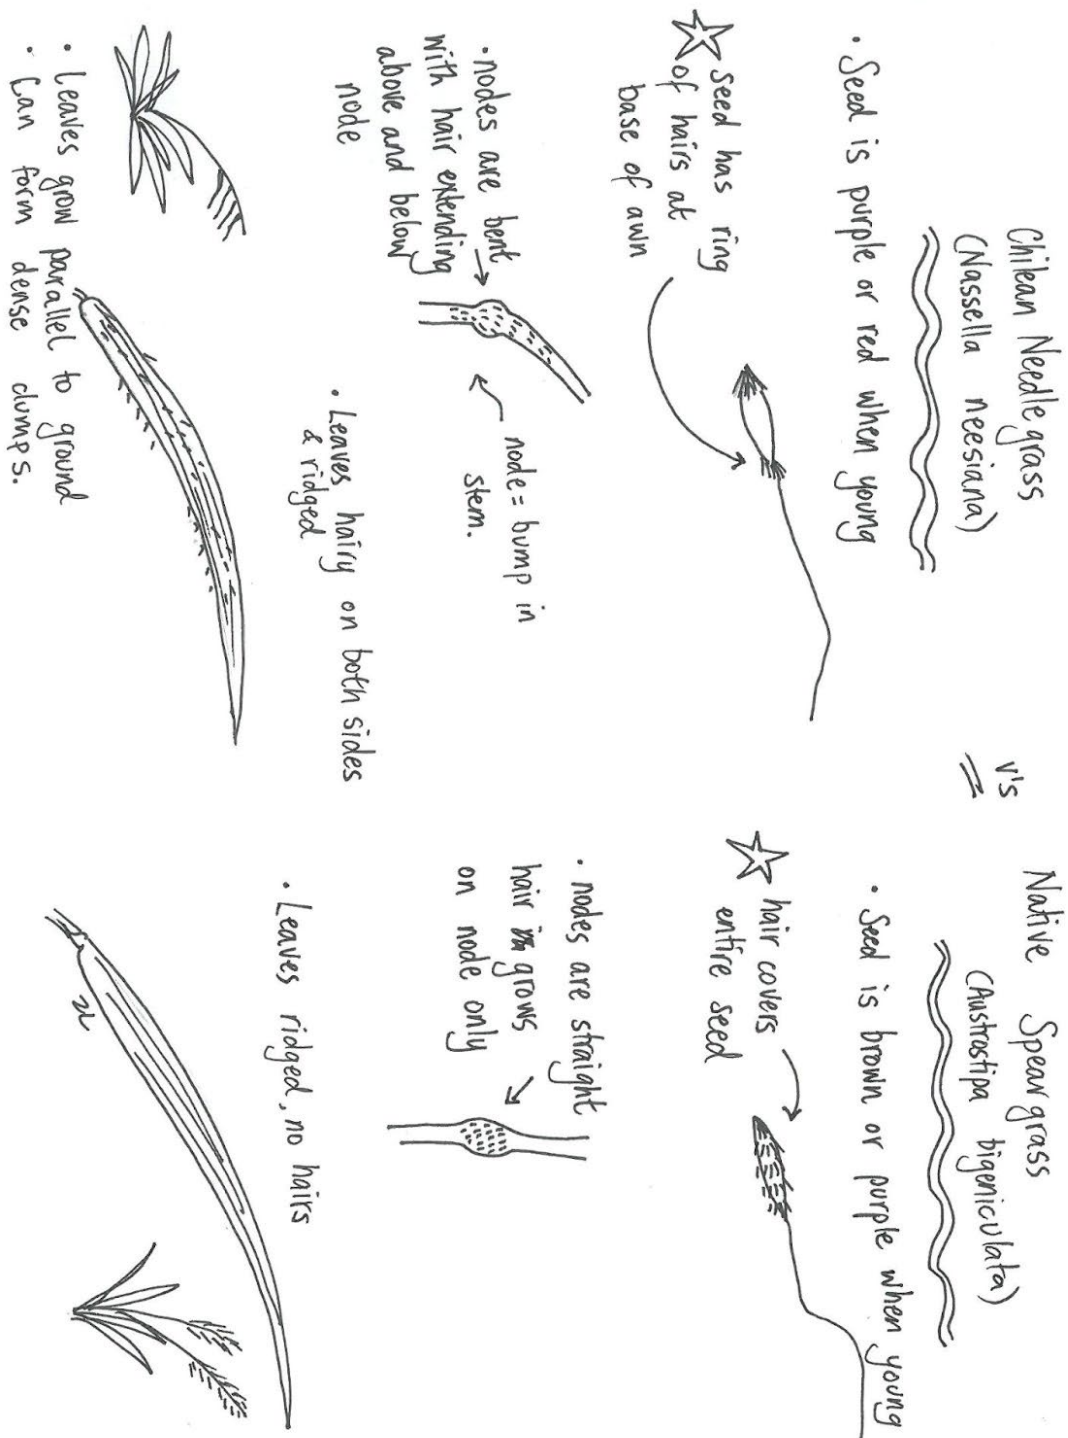 Chilean Needlegrass
(Nassella neesiana)
• Seed is purple or red when young
seed has ring
of hairs at
base of awn
• nodes are bent
with hair extending
above and below
node
node = bump in
stem.
• Leaves hairy on both sides
& ridged
• Leaves grow parallel to ground
• Can form dense clumps.
v's
Native Speargrass
(Austrostipa bigeniculata)
• Seed is brown or purple when young
hair covers
entire seed
• nodes are straight
hair grows
on node only
• Leaves ridged, no hairs